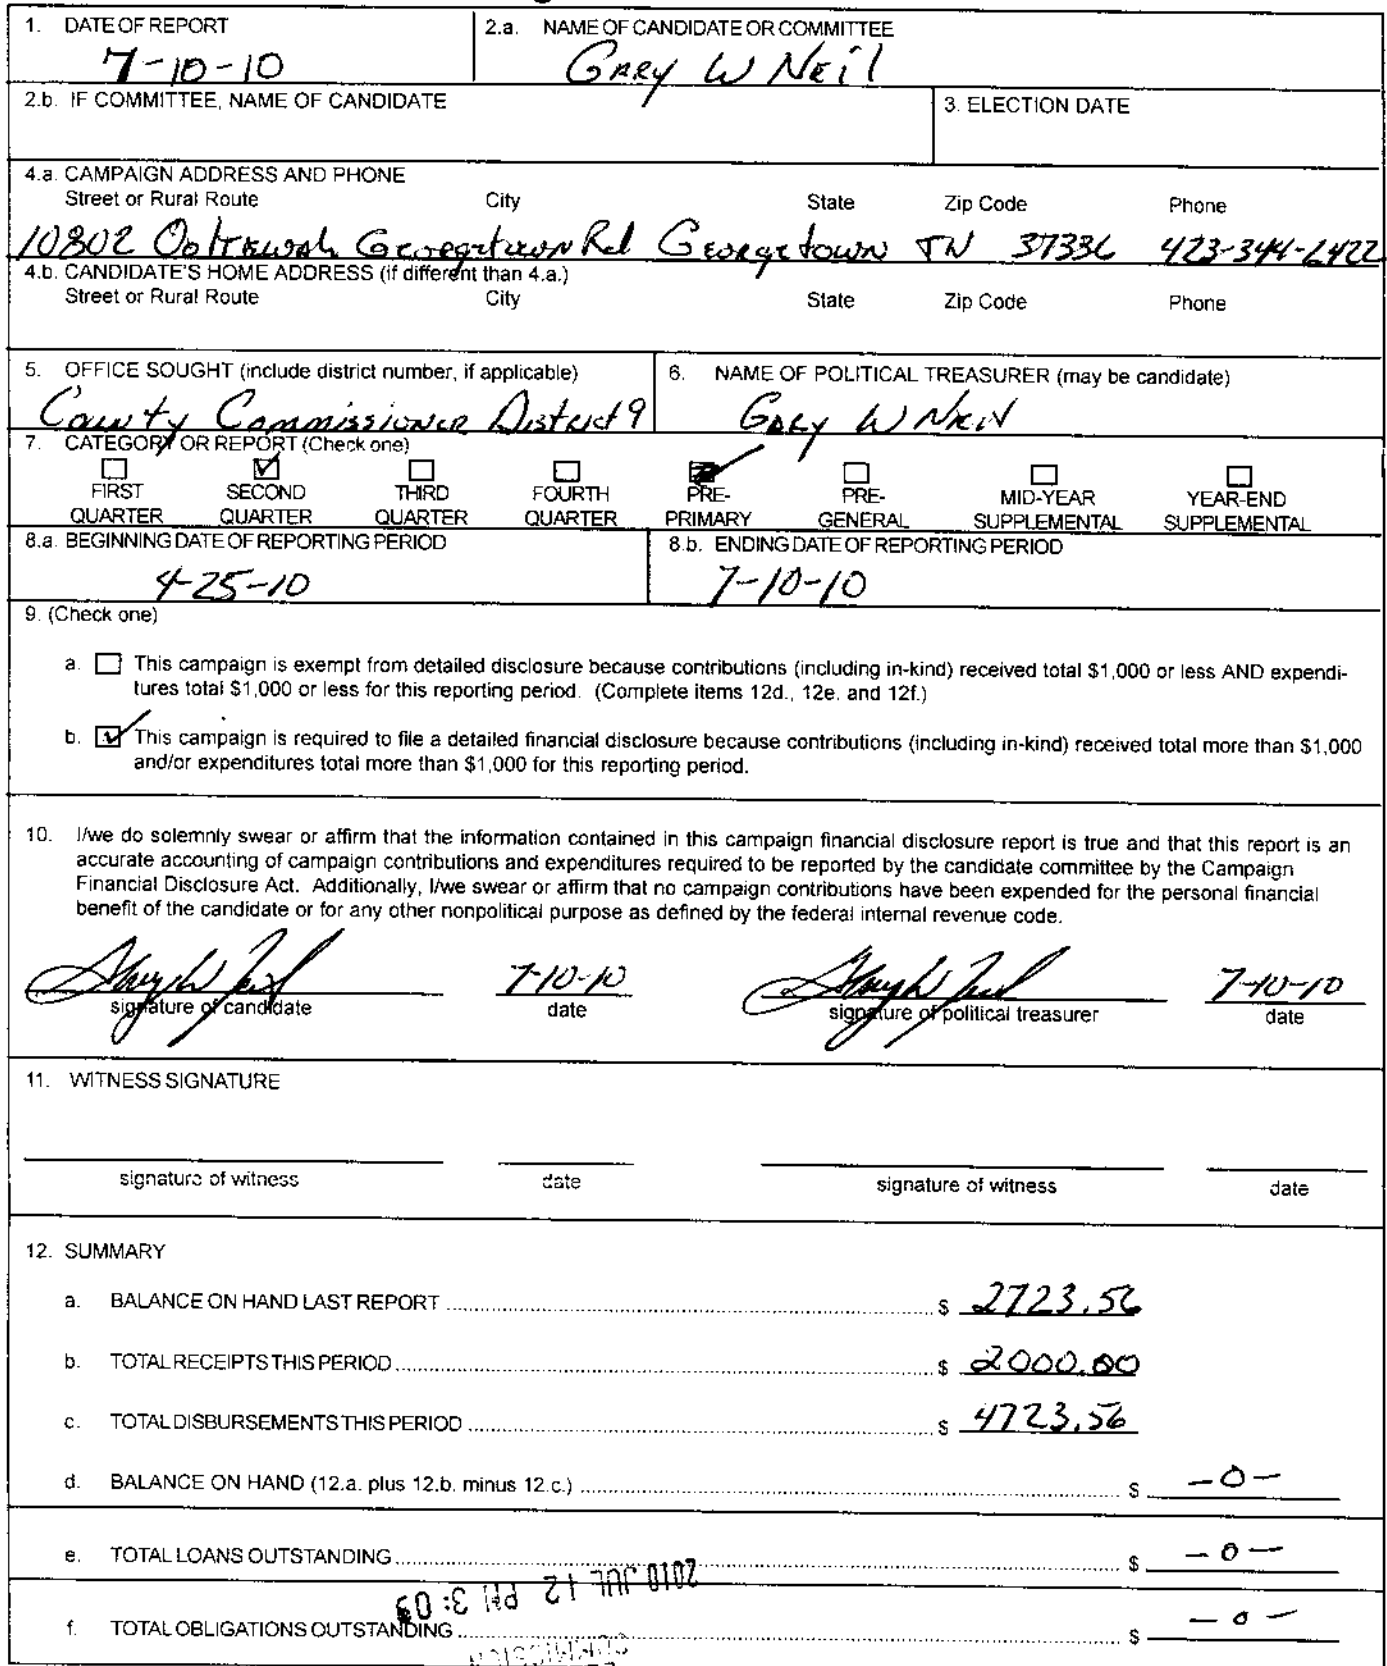 1. DATE OF REPORT
7-10-10
2.a. NAME OF CANDIDATE OR COMMITTEE
GARY W NEil
2.b. IF COMMITTEE, NAME OF CANDIDATE
3. ELECTION DATE
4.a. CAMPAIGN ADDRESS AND PHONE
Street or Rural Route City State Zip Code Phone
10802 Ooltewah Georgetown Rd Georgetown TN 37336 423-344-6422
4.b. CANDIDATE'S HOME ADDRESS (if different than 4.a.)
Street or Rural Route City State Zip Code Phone
5. OFFICE SOUGHT (include district number, if applicable)
County Commissioner District 9
6. NAME OF POLITICAL TREASURER (may be candidate)
GARY W NEil
7. CATEGORY OR REPORT (Check one)
FIRST QUARTER
SECOND QUARTER
THIRD QUARTER
FOURTH QUARTER
PRE-PRIMARY
PRE-GENERAL
MID-YEAR SUPPLEMENTAL
YEAR-END SUPPLEMENTAL
8.a. BEGINNING DATE OF REPORTING PERIOD
4-25-10
8.b. ENDING DATE OF REPORTING PERIOD
7-10-10
9. (Check one)
a. This campaign is exempt from detailed disclosure because contributions (including in-kind) received total $1,000 or less AND expendi-
tures total $1,000 or less for this reporting period. (Complete items 12d., 12e. and 12f.)
b. This campaign is required to file a detailed financial disclosure because contributions (including in-kind) received total more than $1,000
and/or expenditures total more than $1,000 for this reporting period.
10. I/we do solemnly swear or affirm that the information contained in this campaign financial disclosure report is true and that this report is an
accurate accounting of campaign contributions and expenditures required to be reported by the candidate committee by the Campaign
Financial Disclosure Act. Additionally, I/we swear or affirm that no campaign contributions have been expended for the personal financial
benefit of the candidate or for any other nonpolitical purpose as defined by the federal internal revenue code.
Gary W Neil 7-10-10 Gary W Neil 7-10-10
signature of candidate date signature of political treasurer date
11. WITNESS SIGNATURE
signature of witness date signature of witness date
12. SUMMARY
a. BALANCE ON HAND LAST REPORT $ 2723.56
b. TOTAL RECEIPTS THIS PERIOD $ 2000.00
c. TOTAL DISBURSEMENTS THIS PERIOD $ 4723.56
d. BALANCE ON HAND (12.a. plus 12.b. minus 12.c.) $ -0-
e. TOTAL LOANS OUTSTANDING $ -0-
2010 JUL 12 PM 3:03
f. TOTAL OBLIGATIONS OUTSTANDING $ -0-
COMMISSION